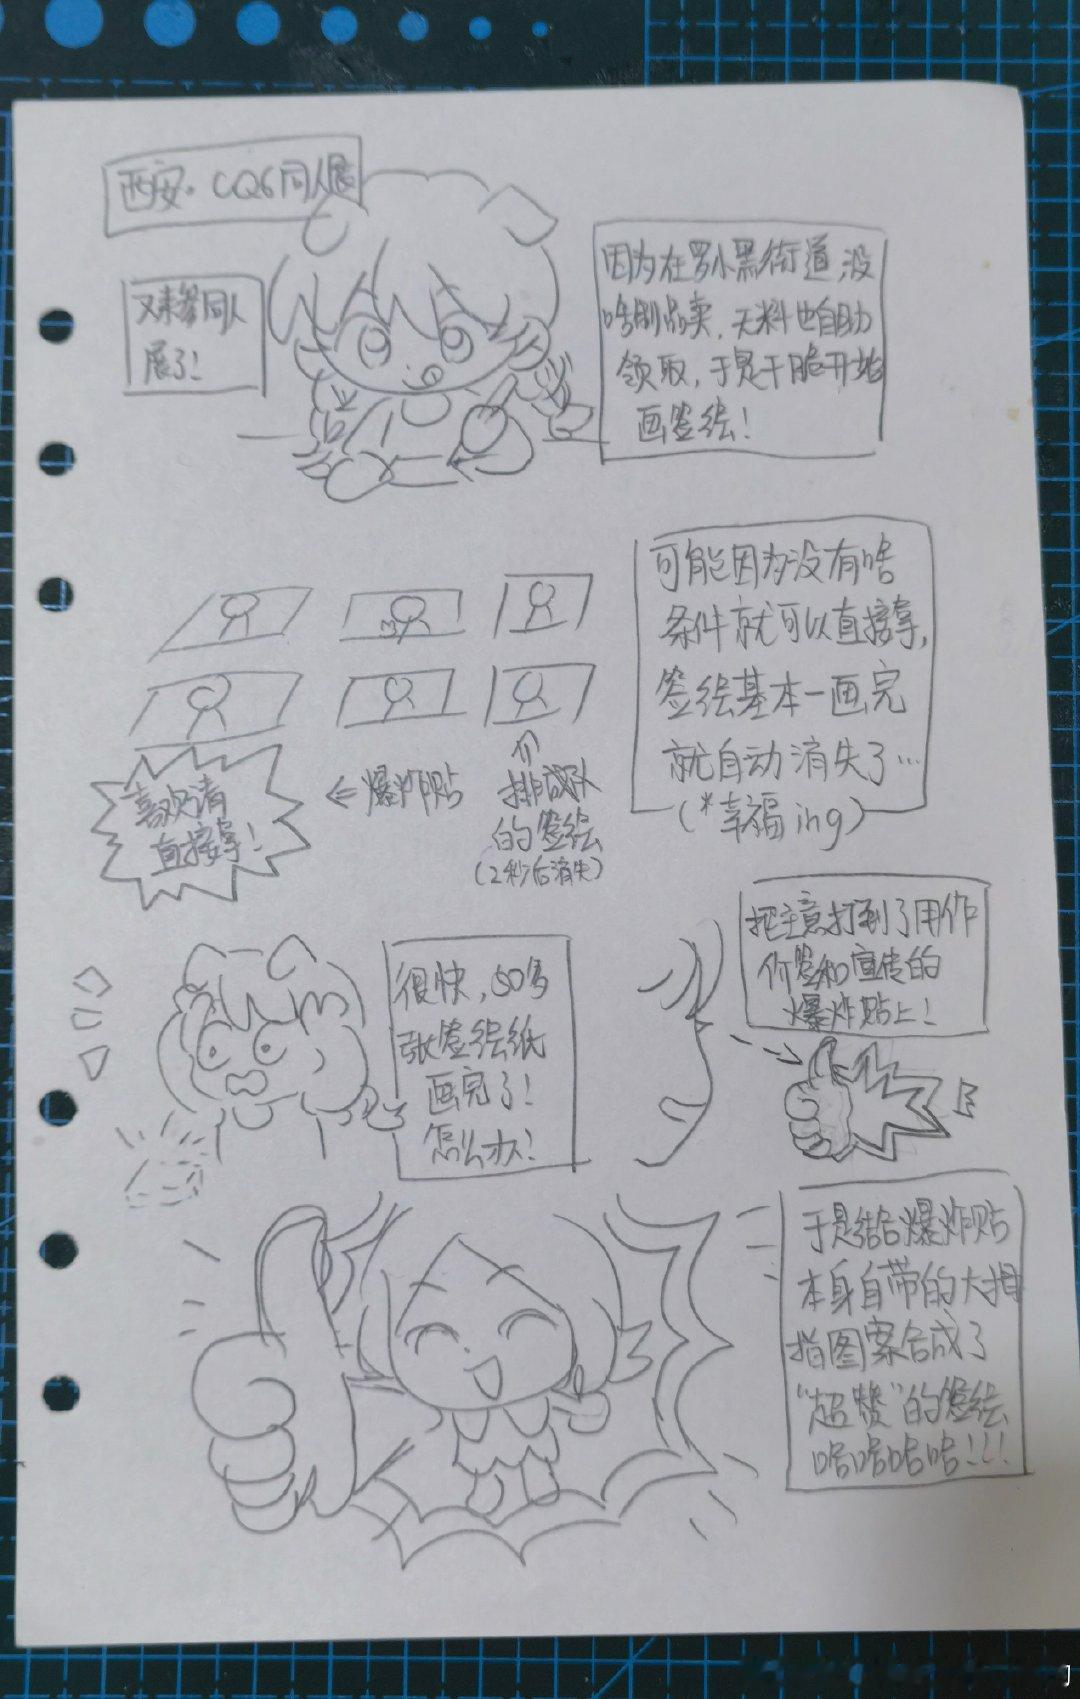 西安·CQ6同人展
又来参同人
展了！
因为在罗小黑街道，没
啥制品卖，无料也自助
领取，于是干脆开始
画签绘！
可能因为没有啥
条件就可以直接拿，
签绘基本一画完
就自动消失了…
(*幸福ing)
喜欢请
直接拿！
←爆炸贴
排成队
的签绘
(2秒后消失)
很快，50多
张签绘纸
画完了！
怎么办！
把主意打到了用作
价签和宣传的
爆炸贴上！
于是结合爆炸贴
本身自带的大拇
指图案合成了
“超赞”的签绘
哈哈哈哈！！！